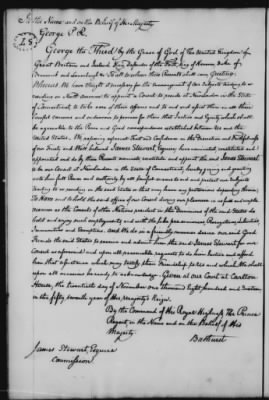 In the Name and on the Behalf of His Majesty
George P. R.
L S
George the Third by the Grace of God of the United Kingdom of
Great Britain and Ireland King Defender of the Faith King of Hanover Duke of
Brunswick and Luneburg &c. To all to whom these Presents shall come Greeting.
Whereas We have thought it necessary for the encouragement of our Subjects trading to
in the State
of Connecticut, to take care of their affairs and to aid and assist them in all their
lawful concerns and to procure for them that Justice and Equity which shall
be agreeable to the Peace and Good correspondence established between Us and the
United States. We reposing especial Trust and Confidence in the Discretion and Faithfulness
of our Trusty and Well beloved James Stewart Esquire, have nominated, constituted and
appointed and do by these Presents nominate, constitute and appoint the said James Stewart
to be our Consul at Newlondon in the State of Connecticut, hereby giving and granting
unto him full Power and authority by all lawful means to aid and protect our Subjects
trading to or residing in the said State or that may have any pretensions depending therein;
To Have and to hold the said office of our Consul during our pleasure in as full and ample
manner as the Consuls of other Nations resident in the Dominions of the said States do
hold and enjoy said employments and with the like Preeminences, Exemptions, Liberties,
Immunities and Exemptions. And We do in a friendly manner desire our said Good
Friends the United States to receive and admit him the said James Stewart for our
Consul aforesaid and upon all reasonable requests to do him Justice and afford
him that assistance which may testify their Friendship to Us and which We shall
upon all occasions be ready to acknowledge. Given at our Court at Carlton
House, the twentieth day of November one thousand eight hundred and sixteen
in the fifty seventh year of His Majesty's Reign.
By the Command of His Royal Highness the Prince
Regent in the Name and on the Behalf of His
Majesty
Bathurst
James Stewart, Esquire
Commission